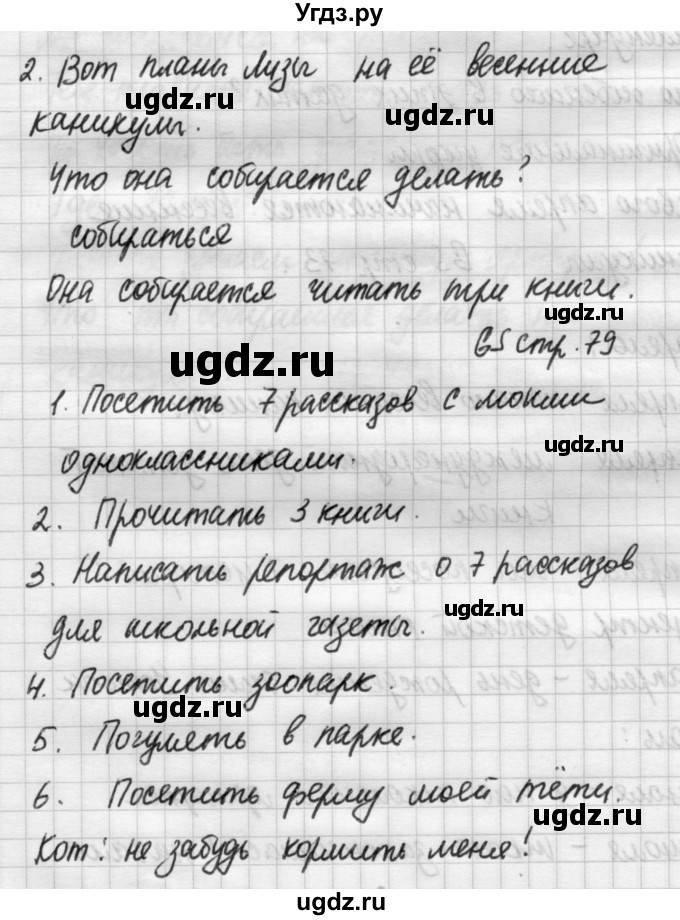 Угдз.ру
2. Вот планы Лизы на её весенние
ugdz.ru
ugdz.ru
каникулы.
Что она собирается делать?
собираться
ugdz.ru
Она собирается читать три книги.
GS стр. 79
ugdz.ru
1. Посетить 7 рассказов с моими
ugdz.ru
одноклассниками.
2. Прочитать 3 книги.
ugdz.ru
3. Написать репортаж о 7 рассказов
ugdz.ru
для школьной газеты.
4. Посетить зоопарк.
ugdz.ru
5. Погулять в парке.
6. Посетить ферму моей тёти.
ugdz.ru
Кот: не забудь кормить меня!
ugdz.ru